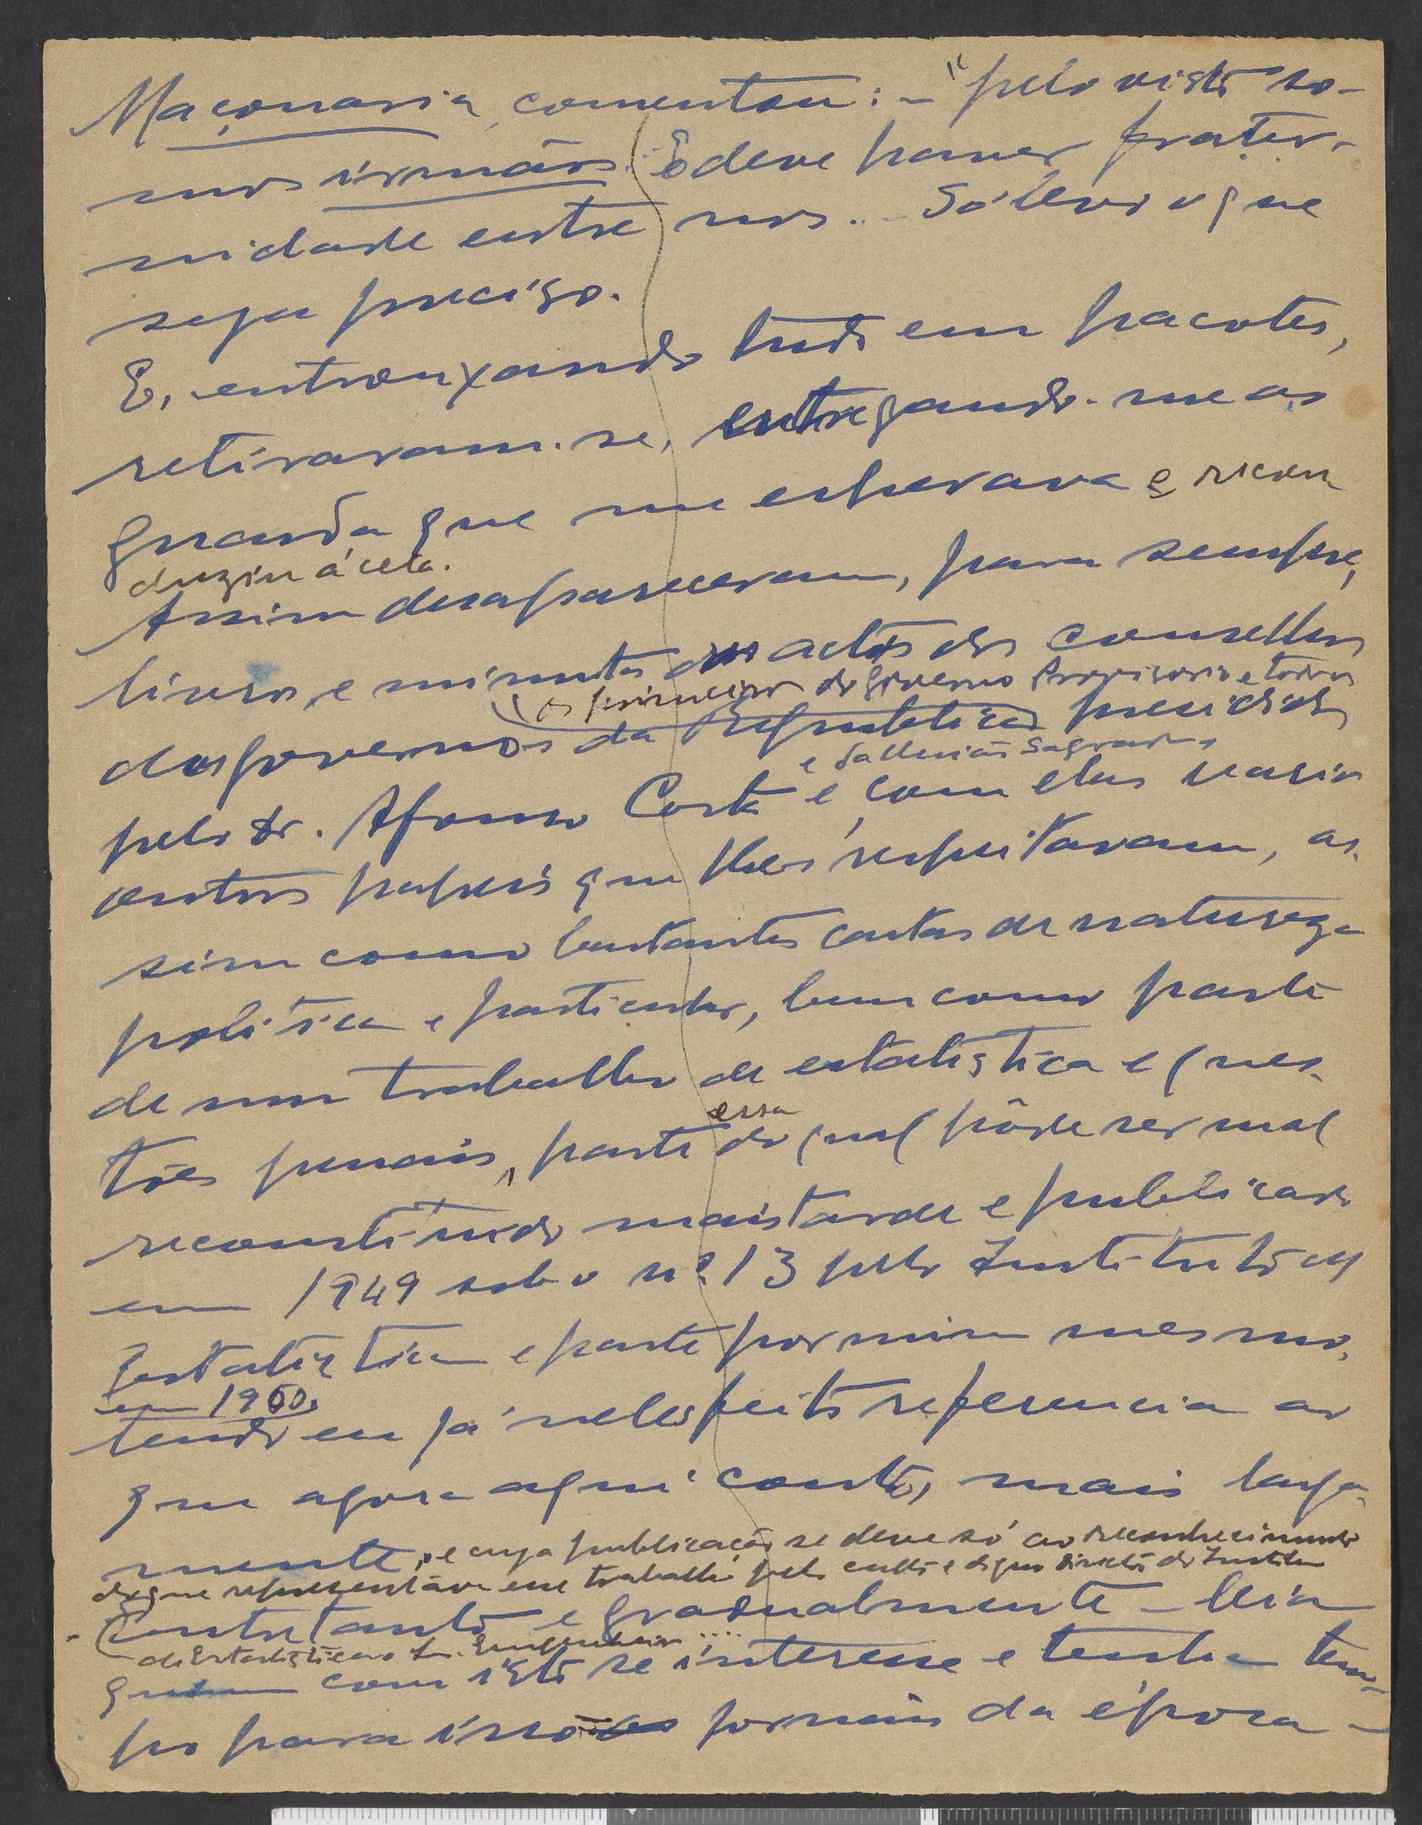 Maçonaria, comentou: – "pelo visto so-
mos irmãos. E deve haver frater-
nidade entre nos... Só levo o que
seja preciso.
E, entrouxando tudo em pacotes,
retiraram-se, entregando-me ao
guarda que me esperava e recon
duziu á cela.
Assim desapareceram, para sempre,
livros, e minutas das actas dos conselhos
(os primeiros do Governo Provisorio e todos
dos governos da Republica presididos
e Salvação Sagrada,
pelo dr. Afonso Costa e, com elas varios
outros papeis que lhes respeitavam, as-
sim como bastantes cartas de natureza
politica e particular, bem como parte
de um trabalho de estatistica e ques-
essa
tões penais, parte do qual pôde ser mal
reconstituido mais tarde e publicado
em 1949 sob o nº 13 pelo Instituto de
Estatistica e parte por mim mesmo,
em 1960.
tendo eu já neles feito referencia ao
que agora aqui conto, mais larga-
mente, e cuja publicação se deve só ao reconhecimento
do que representava esse trabalho pelo culto e digno Director do Institu
Contretanto e gradualmente – leia
de Estatistica o Sr. Engenheiro ....
quem com isto se interesse e tenha tem-
po para isso os jornais da época –